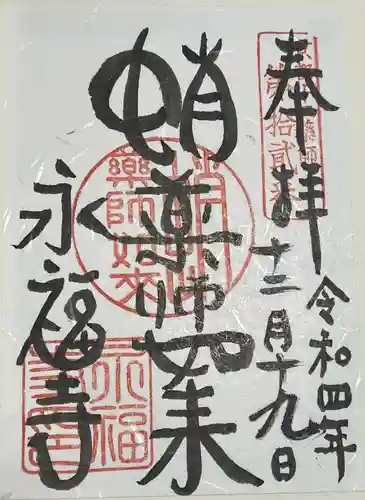 奉拝
令和四年
十二月十九日
蛸薬師如来
永福寺
蛸薬師
薬師如来
永福
寺印